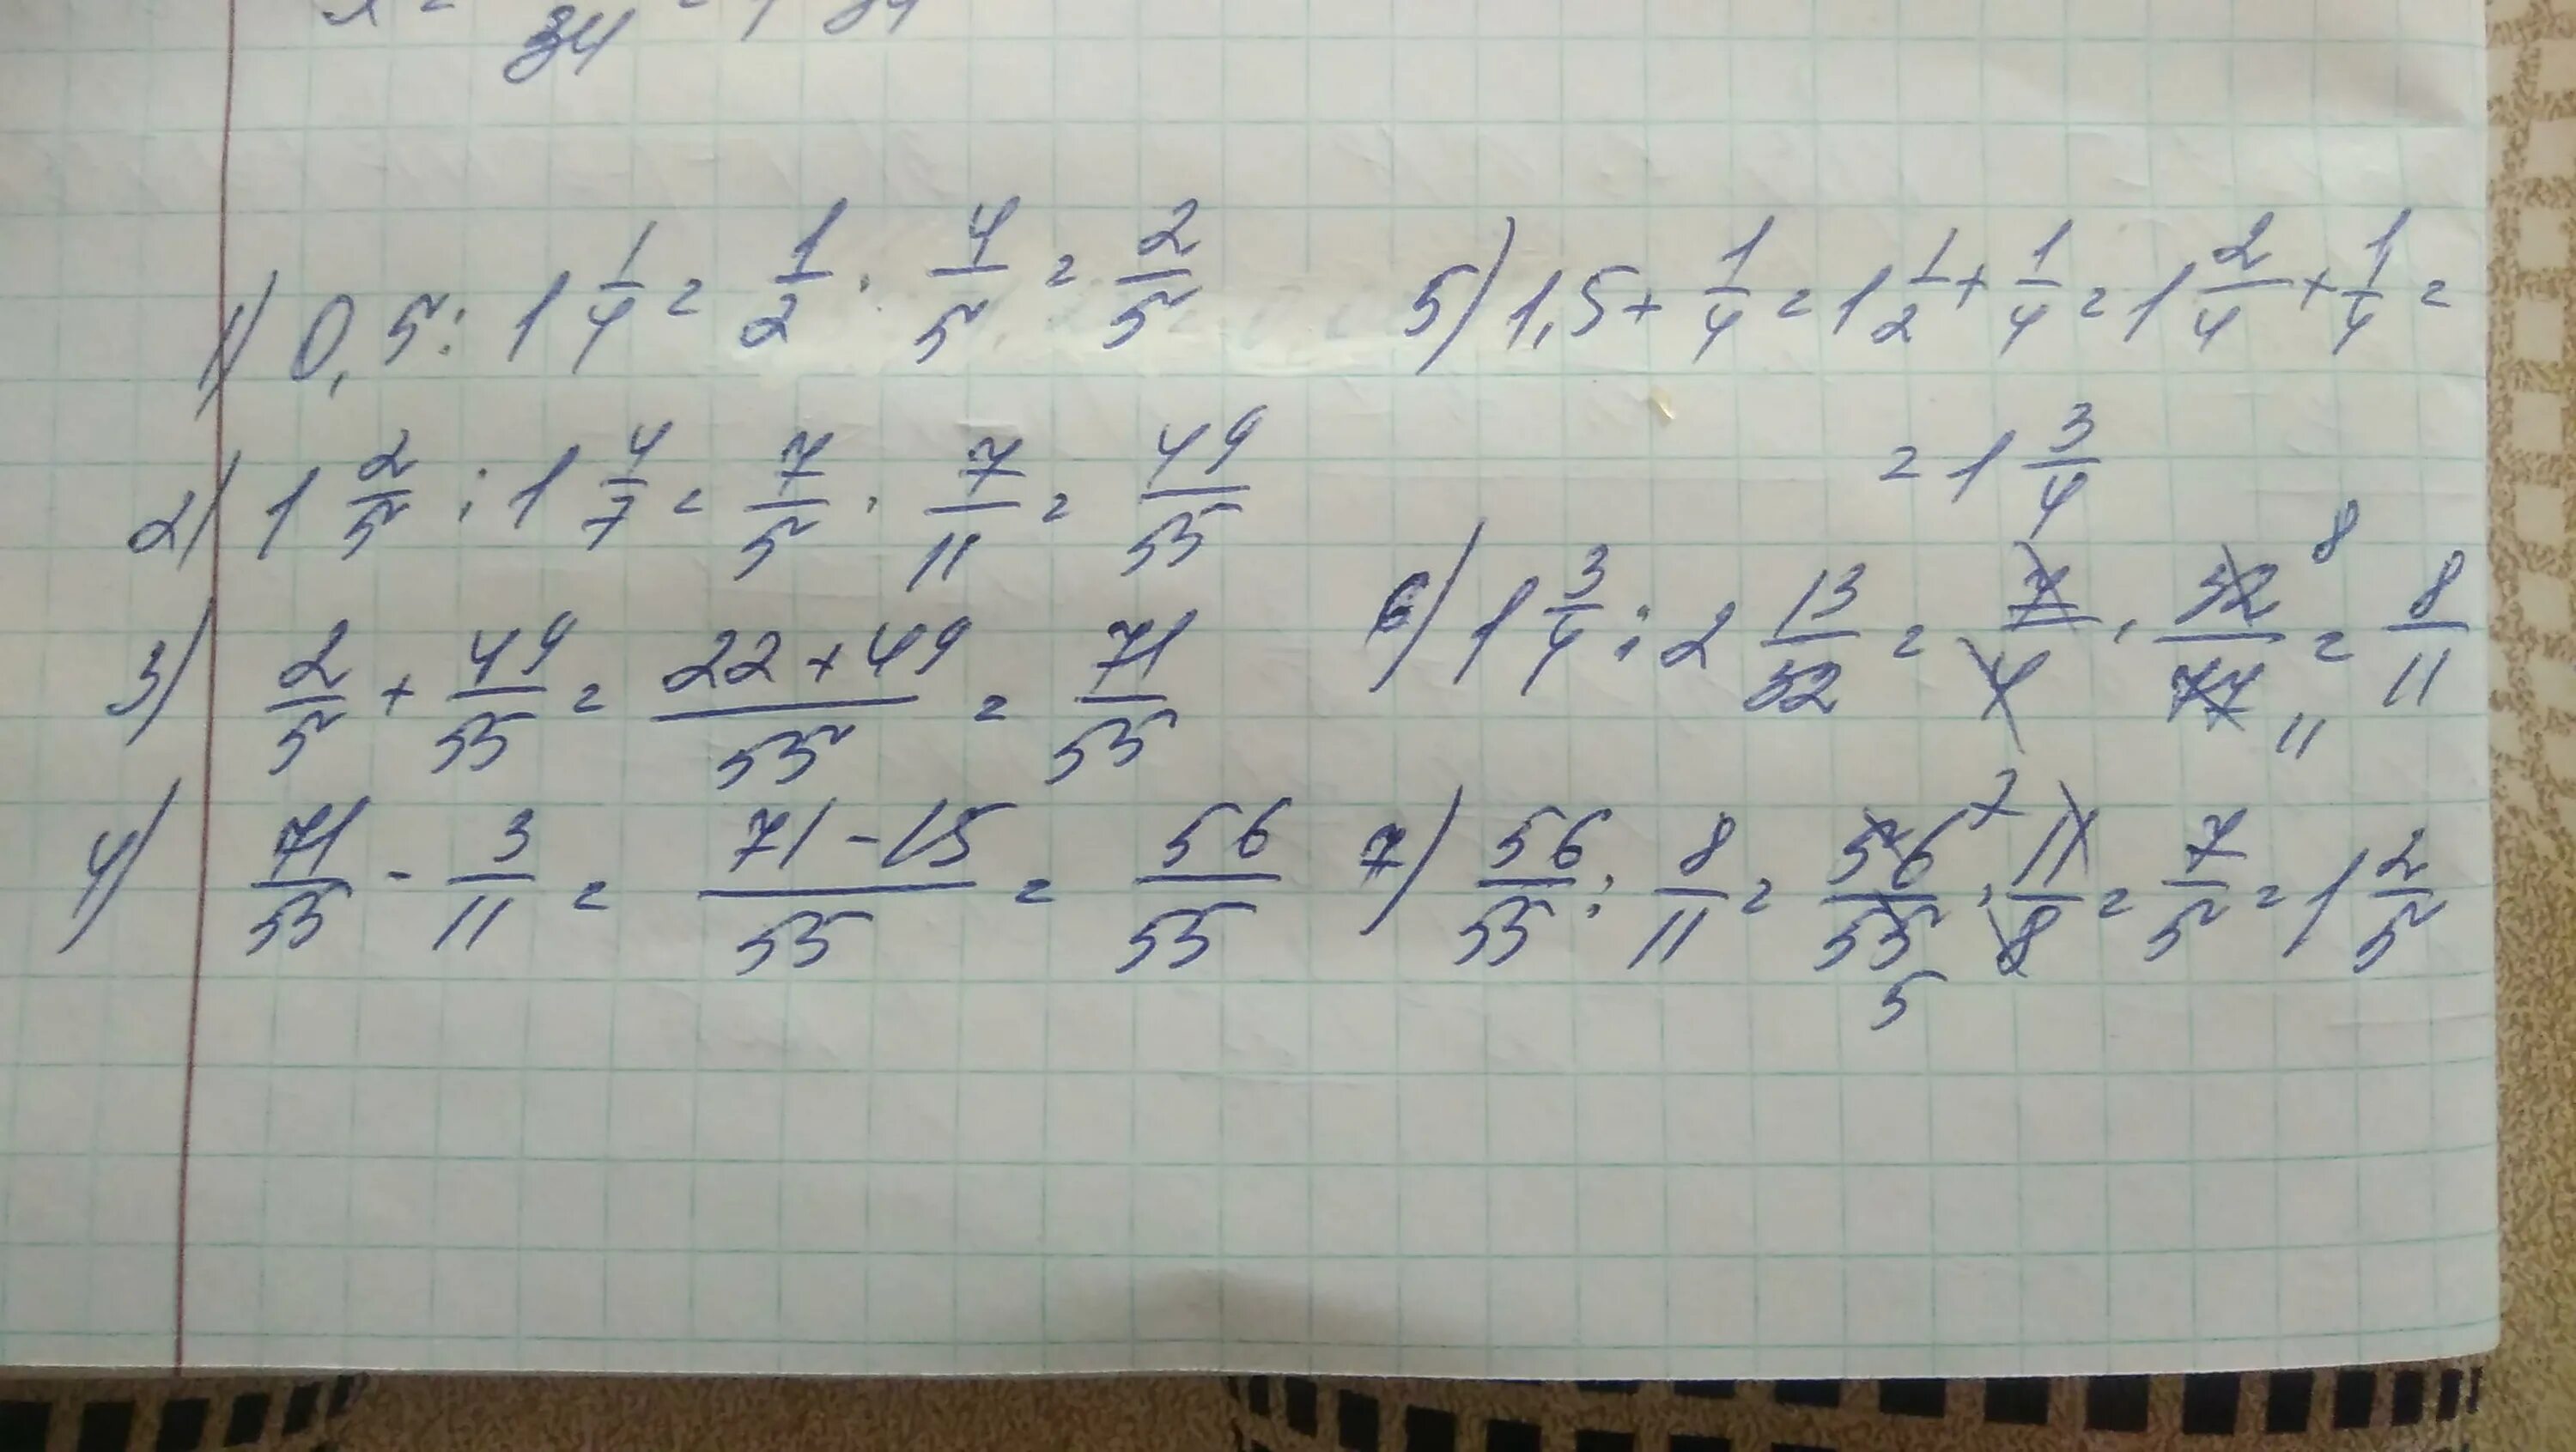 34
1) 0,5 : 1 1/4 = 1/2 · 4/5 = 2/5
2) 1 2/5 : 1 4/7 = 7/5 · 7/11 = 49/55
3) 2/5 + 49/55 = 22+49/55 = 71/55
4) 71/55 - 3/11 = 71-15/55 = 56/55
5) 1,5 + 1/4 = 1 1/2 + 1/4 = 1 2/4 + 1/4 =
= 1 3/4
6) 1 3/4 : 2 13/32 = 7/4 · 32 8/77 11 = 8/11
7) 56/55 : 8/11 = 56 7/55 5 · 11/8 = 7/5 = 1 2/5